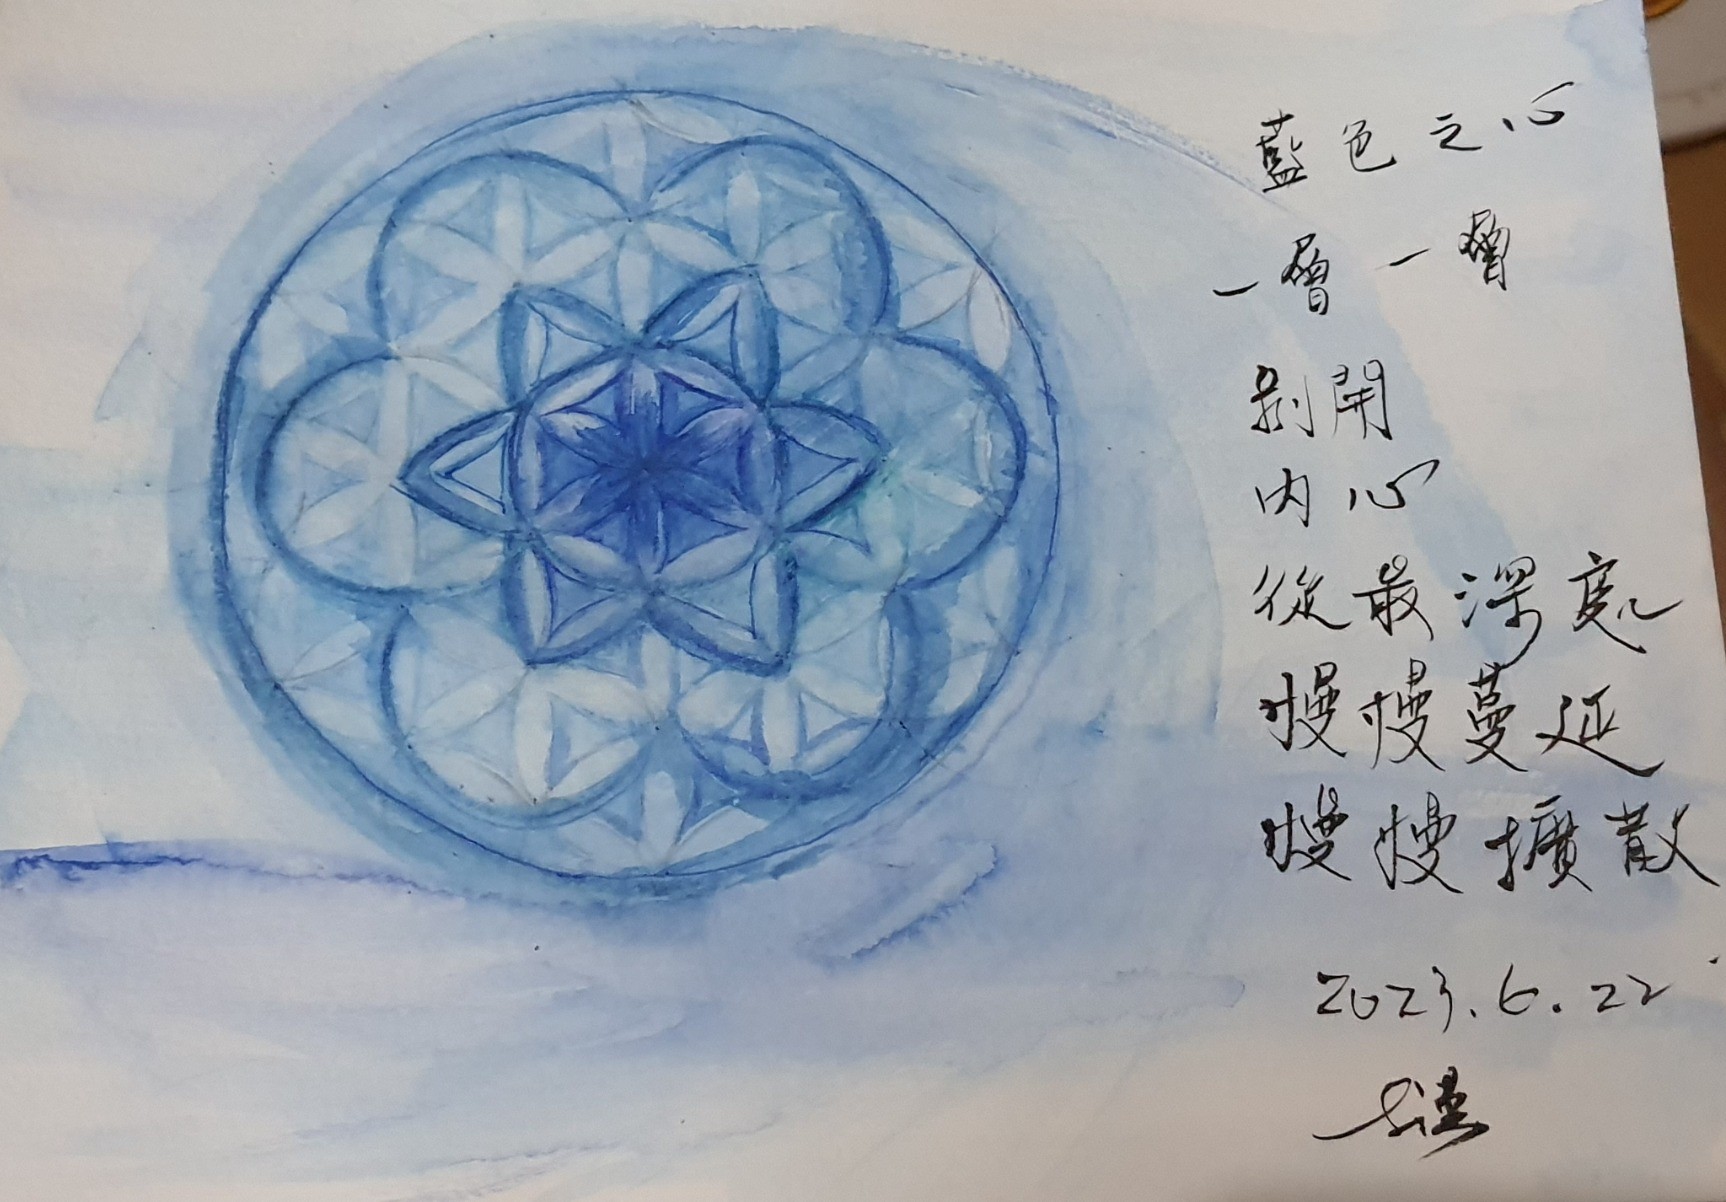 藍色之心
一層一層
剝開
內心
從最深處
慢慢蔓延
慢慢擴散
2023.6.22